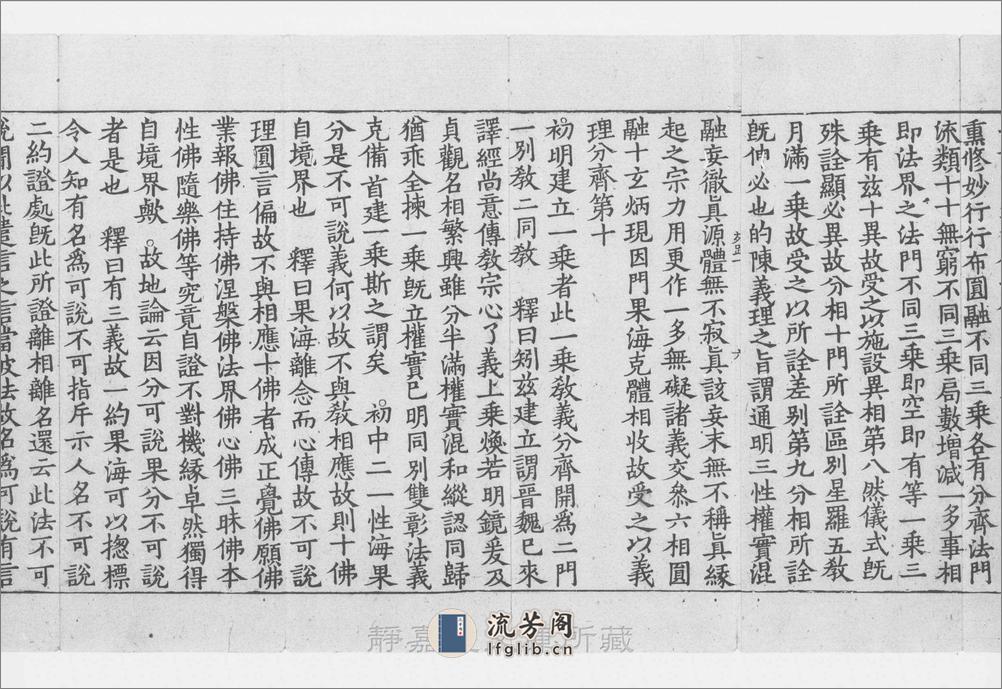 熏修妙行行布圓融不同三乘各有分齊法門
流類十十無窮不同三乘局數增減一多事相
即法界之法門不同三乘即空即有等一乘三
乘有兹十異故受之以施設異相第八然儀式旣
殊詮顯必異故分相十門所詮區別星羅五敎
月滿一乘故受之以所詮差别第九分相所詮
旣伸必也的陳義理之旨謂通明三性權實混
融妄徹眞源體無不寂眞該妄末無不稱眞緣
起之宗力用更作一多無礙諸義交叅六相圓
融十玄炳現因門果海克體相收故受之以義
理分齊第十
初明建立一乘者此一乘敎義分齊開爲二門
一別敎二同敎 釋曰矧兹建立謂晉魏已來
譯經尚意傳敎宗心了義上乘煥若明鏡爰及
貞觀名相繁興雖分半滿權實混和縱認同歸
猶乖全揀一乘旣立權實已明同別雙彰法義
克備首建一乘斯之謂矣 初中二一性海果
分是不可說義何以故不與敎相應故則十佛
自境界也 釋曰果海離念而心傳故不可說
理圓言偏故不與相應十佛者成正覺佛願佛
業報佛住持佛涅槃佛法界佛心佛三昧佛本
性佛隨樂佛等究竟自證不對機緣卓然獨得
自境界歟 故地論云因分可說果分不可說
者是也 釋曰有三義故一約果海可以揔標
令人知有名爲可說不可指斥示人名不可說
二約證處旣此所證離相離名還云此法不可
說聞以此遣言之言當彼法故名爲可說有言
六
靜嘉 所藏
流芳阁
lfglib.cn